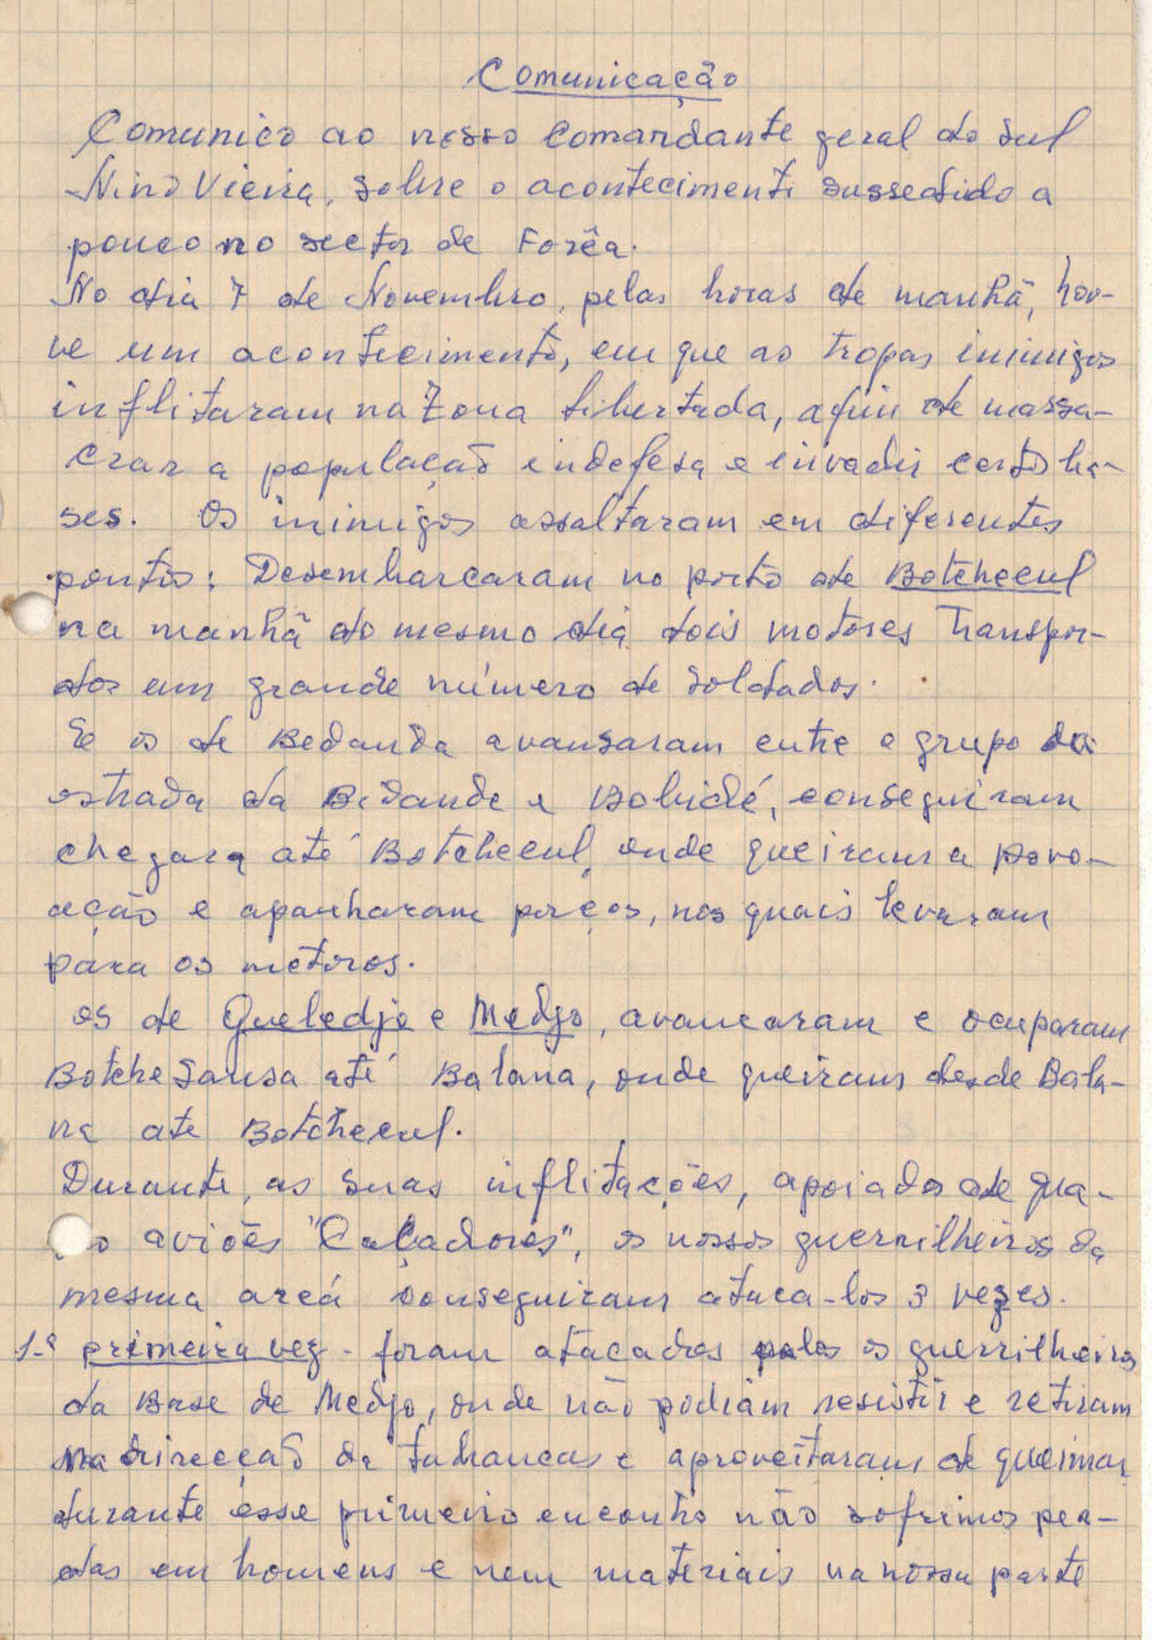 Comunicação
Comunico ao nosso Comandante geral do Sul
Nino Vieira, sobre o acontecimento sussedido a
pouco no sector de Forêa.
No dia 7 de Novembro, pelas horas de manhã, hou-
ve um acontecimento, em que as tropas inimigos
inflitaram na Zona libertada, afim de massa-
crar a população indefesa e invadir certos ba-
ses. Os inimigos assaltaram em diferentes
pontos: Desembarcaram no porto de Botchecul
na manhã do mesmo dia dois motores Transpor-
dos um grande número de Soldados.
Se os de Bedanda avansaram entre o grupo da
estrada da Bedande e Bobidé, conseguiram
chegara até Botchecul, onde queiram a povo-
ação e apanharam porços, nos quais levaram
para os motores.
os de Queledje e Medjo, avancaram e ocuparam
Botche Sansa até Balana, onde queiram desde Bala-
na ate Botchecul.
Durante, as suas inflitações, apoiados de qua-
o aviões "Caçadores", os nossos guerrilheiros da
mesma areá conseguiram ataca-los 3 vezes.
1-º primeira vez - foram atacados pelos os guerrilheiros
da Base de Medjo, onde não podiam resistir e retiram
na direcção de tabancas e aproveitaram de queimar
durante esse primeiro encontro não sofrimos per-
das em homens e nem materiais na nossa parte